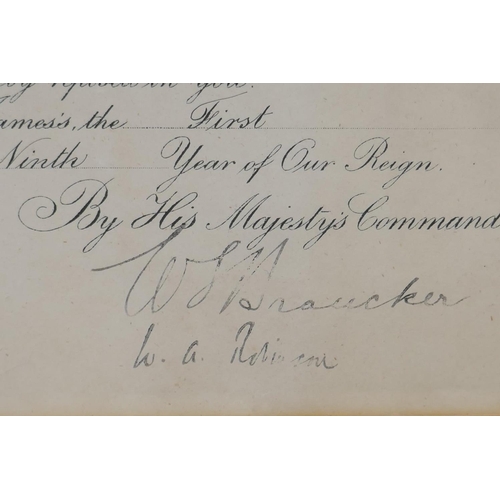 reposed in you.
James's, the First
Ninth Year of Our Reign.
By His Majesty's Command
W. A. Robinson